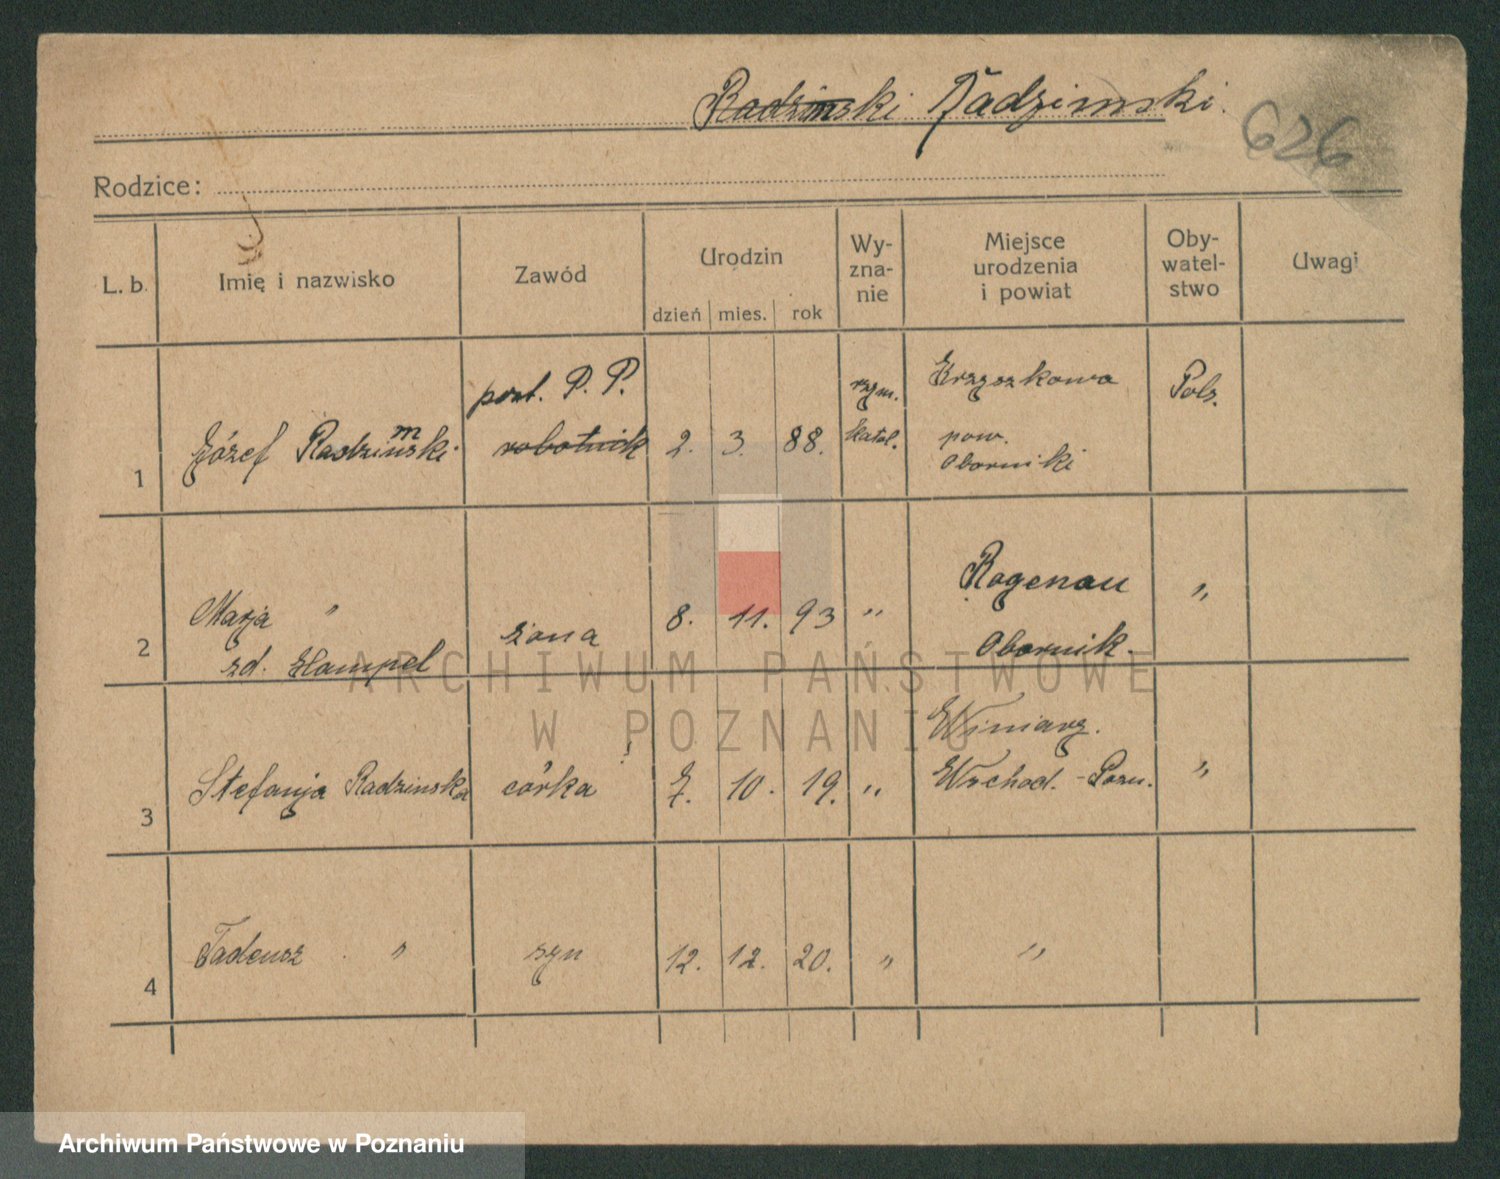 Radzinski Radzimski.
626
Rodzice:
L. b. Imię i nazwisko Zawód Urodzin dzień mies. rok Wy-zna-nie Miejsce urodzenia i powiat Oby-watel-stwo Uwagi
post. P. P. rzym. Krzyszkowo Pols.
1 Józef Radzimski robotnik 2. 3. 88. katol. pow.
Oborniki
Rogenau
2 Marja " żona 8. 11. 93 " "
zd. Hampel Obornik.
Winiary.
3 Stefanja Radzinska córka 7. 10. 19. " Wschod. - Pozn. "
4 Tadeusz " syn 12. 12. 20. " "
ARCHIWUM PAŃSTWOWE
W POZNANIU
Archiwum Państwowe w Poznaniu